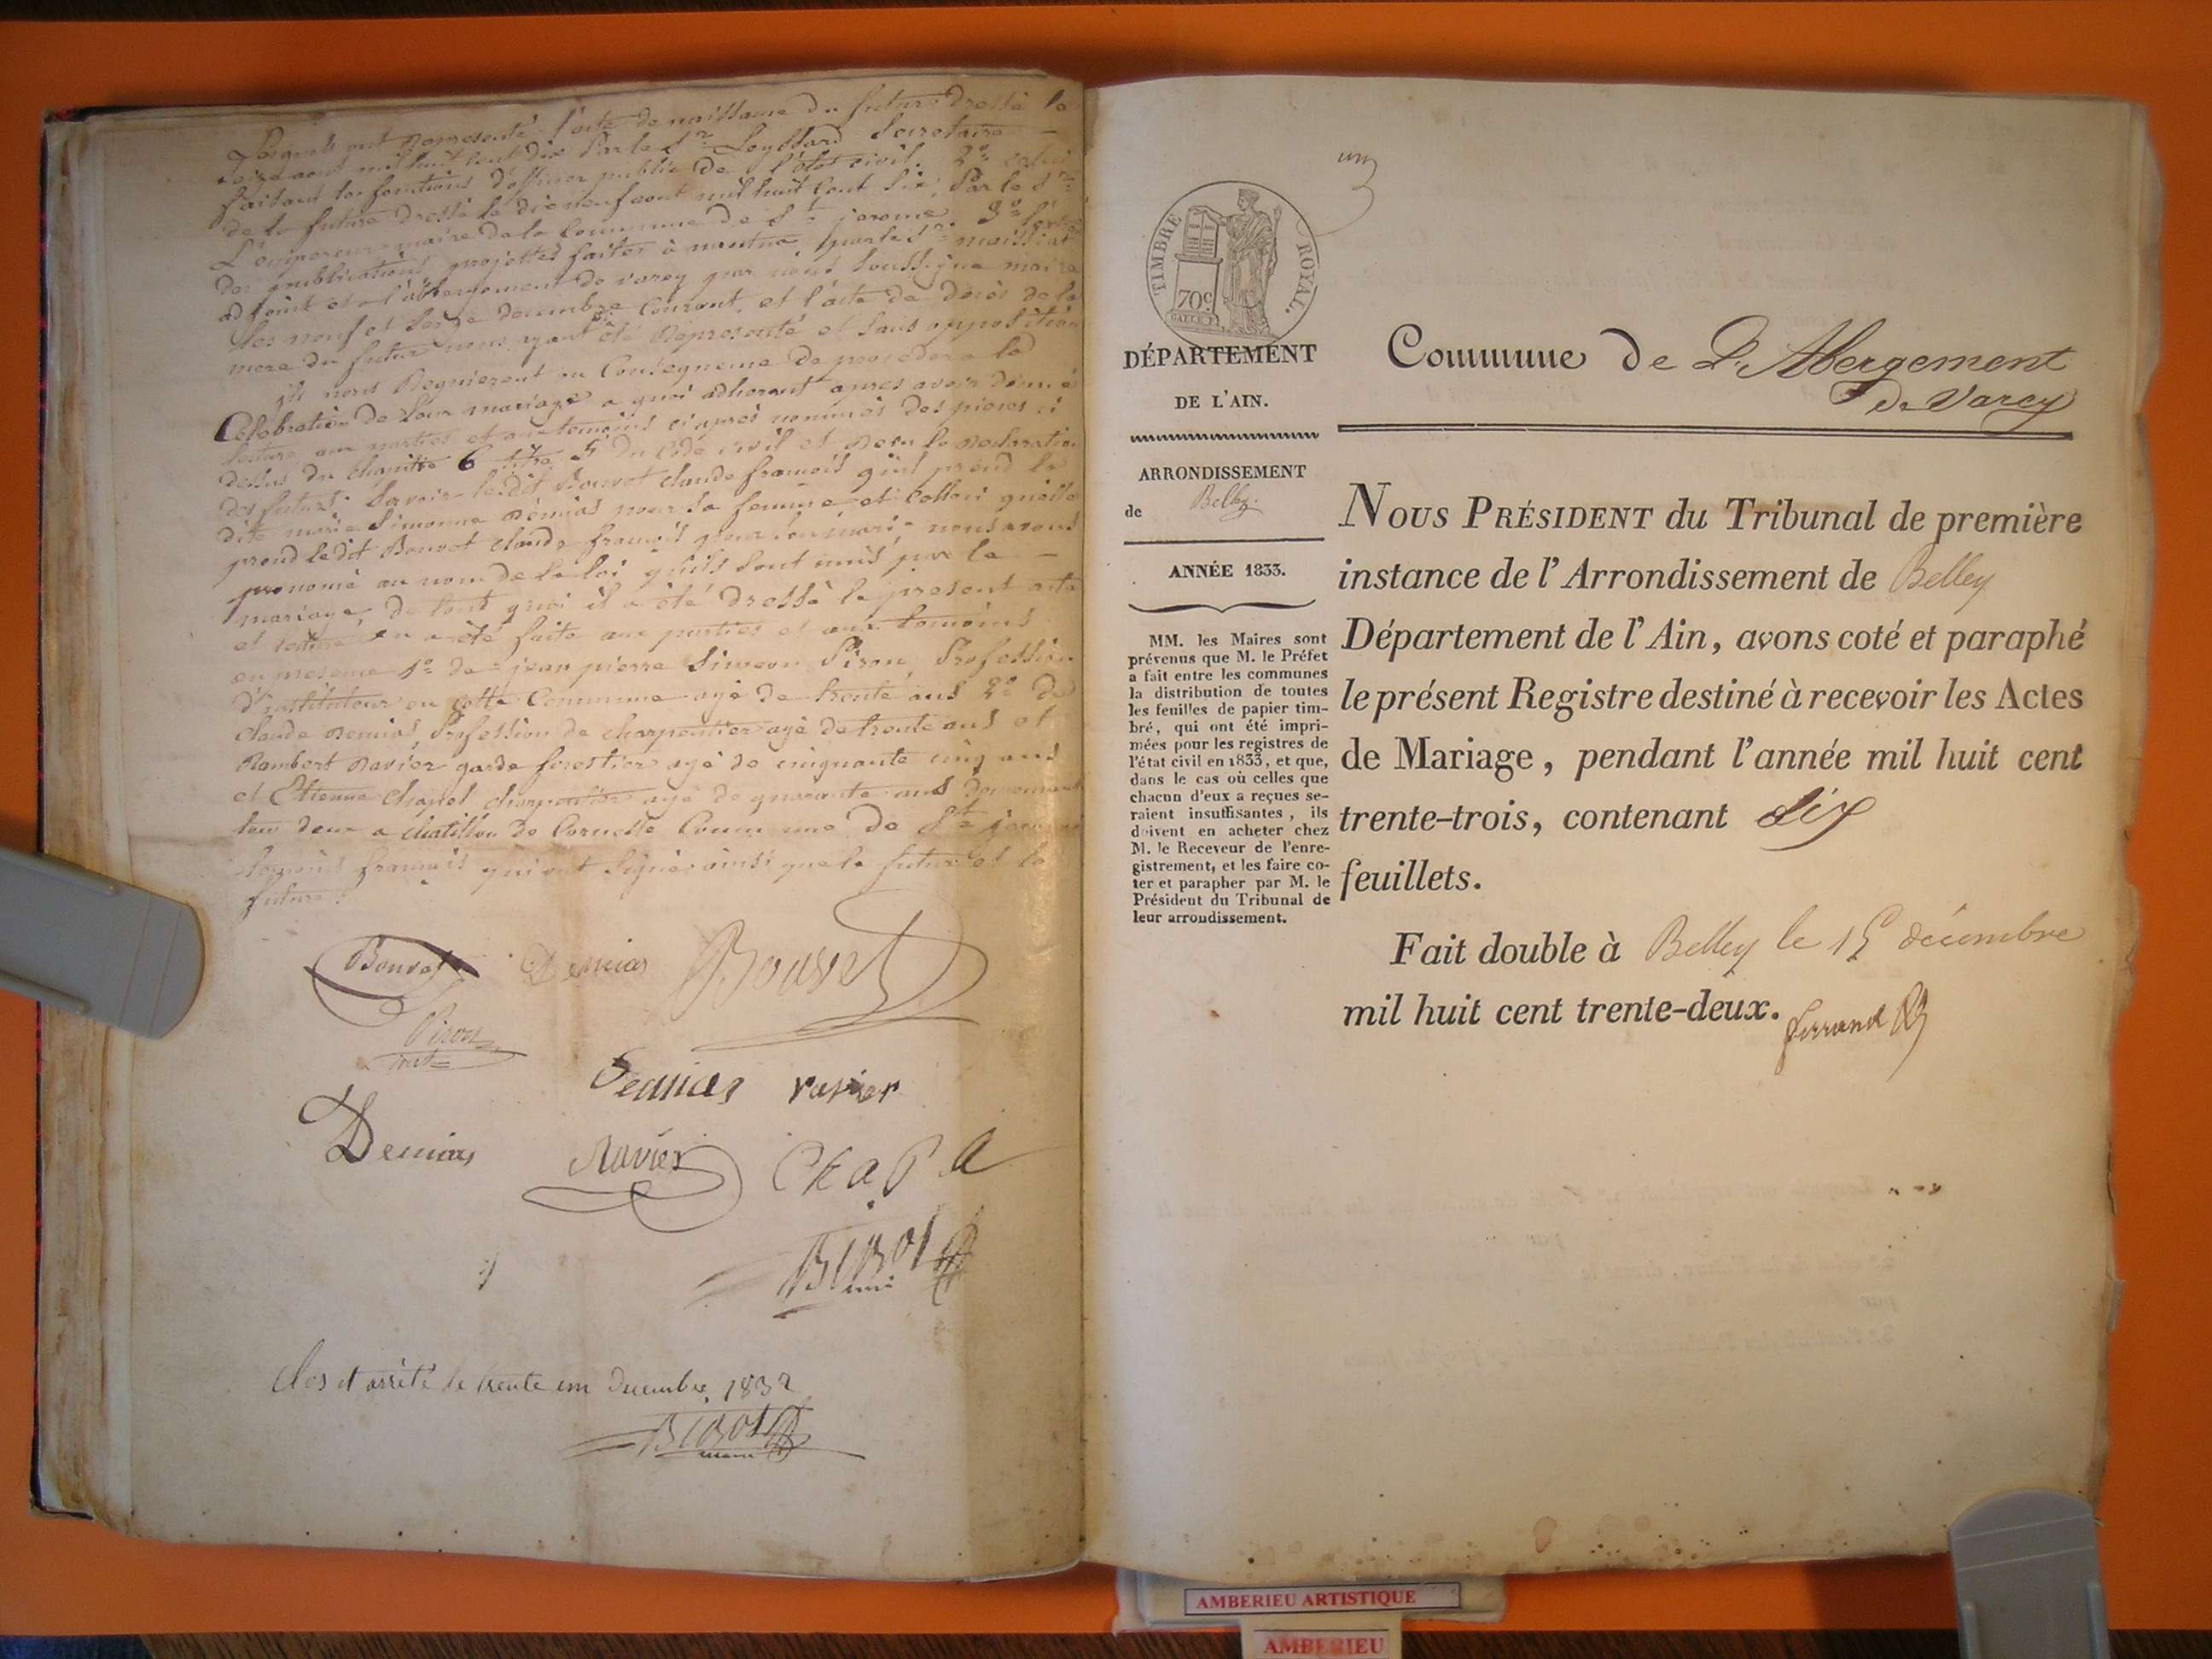 Lesquels ont Representé l'acte de naissance du futur dressé le
seize aout mil huit cent dix Par le Sr Secretaire
faisant les fonctions d'officier public de l'état civil. 2° celui
de la future dressé le dix neuf aout mil huit cent six, Par le Sr
L'empereur maire de la Commune de St jerome. 3° l'extrait
des publications projettés faites à nantua par le Sr
adjoint et a l'abbergement de varey par nous soussigné maire
les neuf et seize decembre Courant, et l'acte de décès de la
mere du futur nous ayant été Representé et sans opposition
ils nous Requierent en Consequence de proceder a la
Celebration de leur mariage a quoi adherant apres avoir donné
lecture aux parties et aux temoins ci après nommés des pieces ci
dessus du chapitre 6 titre 5 du Code civil et Recu la Declaration
des futurs Savoir ledit Bouvet claude françois qu'il prend la
dite marie Simonne Démias pour sa femme et celle ci qu'elle
prend ledit Bouvet claude françois pour son mari, nous avons
prononcé au nom de la loi qu'ils sont unis par le
mariage, de tout quoi il a été dressé le present acte
et lecture en a été faite aux parties et aux temoins
en presence 1° de jean pierre Simeon Piron, Profession
d'instituteur en cette Commune agé de trente ans 2° de
claude Demias, Profession de charpentier agé de trente ans et
Rambert Ravier garde forestier agé de cinquante cinq ans
et Etienne Chapel charpentier agé de quarante ans demeurant
tous deux a chatillon de Cornelle Commune de St jerome
temoins français qui ont Signé ainsi que le futur et la
future.
Bouvet Demias Bouvet
Piron
inst
Demias ravier
Demias Ravier Chapel
BIROT
maire
Clos et arrêté le trente un Decembre 1832
BIROT
maire
un
TIMBRE ROYAL.
70c
DÉPARTEMENT
DE L'AIN.
ARRONDISSEMENT
de Belley
ANNÉE 1833.
MM. les Maires sont
prévenus que M. le Préfet
a fait entre les communes
la distribution de toutes
les feuilles de papier tim-
bré, qui ont été impri-
mées pour les registres de
l'état civil en 1833, et que,
dans le cas où celles que
chacun d'eux a reçues se-
raient insuffisantes, ils
doivent en acheter chez
M. le Receveur de l'enre-
gistrement, et les faire co-
ter et parapher par M. le
Président du Tribunal de
leur arrondissement.
Commune de L'Abergement
de Varey
NOUS PRÉSIDENT du Tribunal de première
instance de l'Arrondissement de Belley
Département de l'Ain, avons coté et paraphé
le présent Registre destiné à recevoir les Actes
de Mariage, pendant l'année mil huit cent
trente-trois, contenant Six
feuillets.
Fait double à Belley le 15 décembre
mil huit cent trente-deux.
Ferrand
AMBERIEU ARTISTIQUE
AMBERIEU